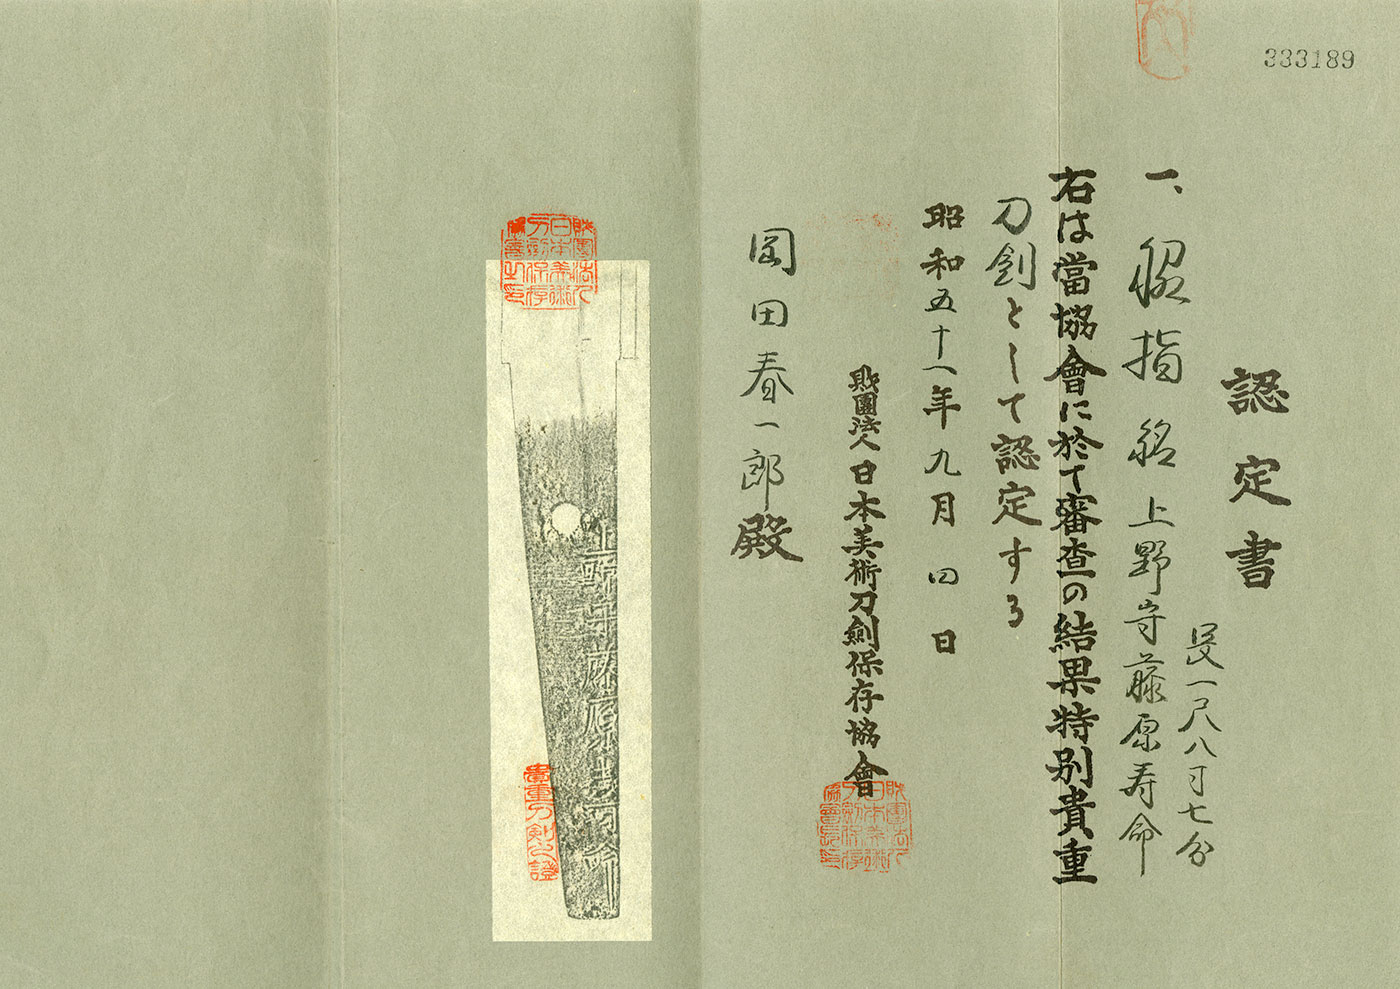 333189
認定書
長一尺八寸七分
一、脇指 銘 上野守藤原寿命
右は當協會に於て審査の結果特別貴重
刀剣として認定する
昭和五十一年九月四日
財團法人日本美術刀劍保存協會
岡田春一郎殿
上野守藤原寿命
貴重刀剣之證